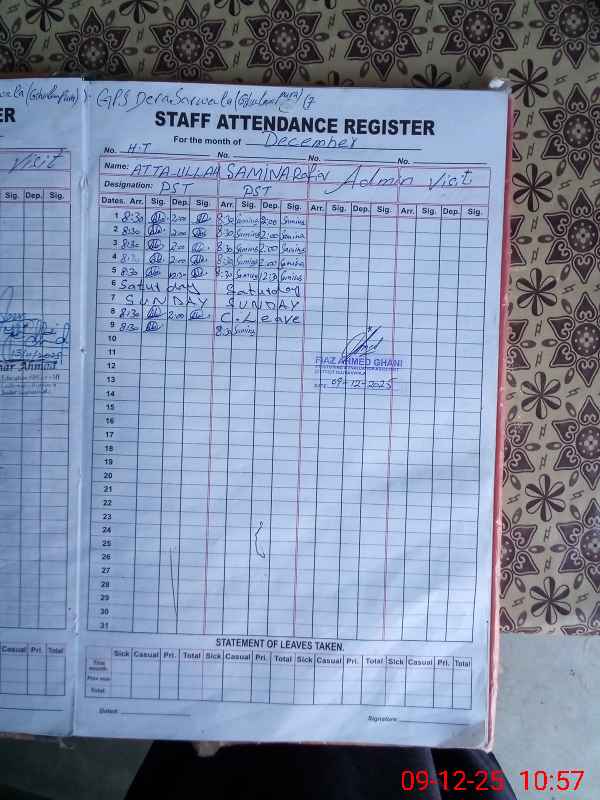 GPS Dera Sarwela (Ghulam pura)
STAFF ATTENDANCE REGISTER
For the month of December
No. H.T No. No. No.
Name: ATTA-ULLAH SAMINA Rafiq Admin Visit
Designation: PST PST
Dates. Arr. Sig. Dep. Sig. Arr. Sig. Dep. Sig. Arr. Sig. Dep. Sig. Arr. Sig. Dep. Sig.
1 8:30 2:00 8:30 Samina 2:00 Samina
2 8:30 2:00 8:30 Samina 2:00 Samina
3 8:30 2:00 8:30 Samina 2:00 Samina
4 8:30 2:00 8:30 Samina 2:00 Samina
5 8:30 8:30 Samina 12:30 Samina
6 Saturday Saturday
7 SUNDAY SUNDAY
8 8:30 2:00 C. Leave
9 8:30 8:30 Samina
10
11
12
13
14
15
16
17
18
19
20
21
22
23
24
25
26
27
28
29
30
31
RIAZ AHMED GHANI
DATE 09-12-2025
STATEMENT OF LEAVES TAKEN.
Sick Casual Pri. Total Sick Casual Pri. Total Sick Casual Pri. Total Sick Casual Pri. Total
This month
Total
Dated:
Signature
Visit
Sig. Dep. Sig.
Casual Pri. Total
09-12-25 10:57